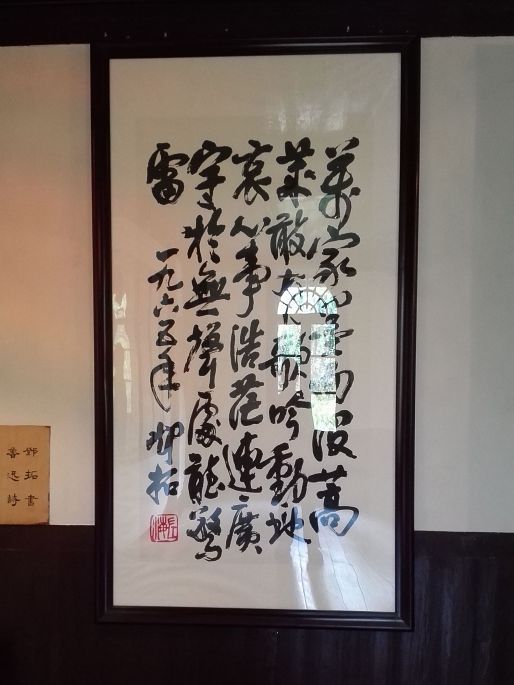 萬家墨面沒蒿
萊敢有歌吟動地
哀心事浩茫連廣
宇於無聲處聽驚
雷
一九六五年 鄧拓
鄧拓書
魯迅詩